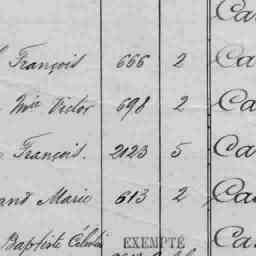 Ca
François 666 2 Ca
Victor 698 2 Ca
François. 2123 5 Ca
Marie 613 2 Ca
Baptiste Célestin EXEMPTÉ Ca